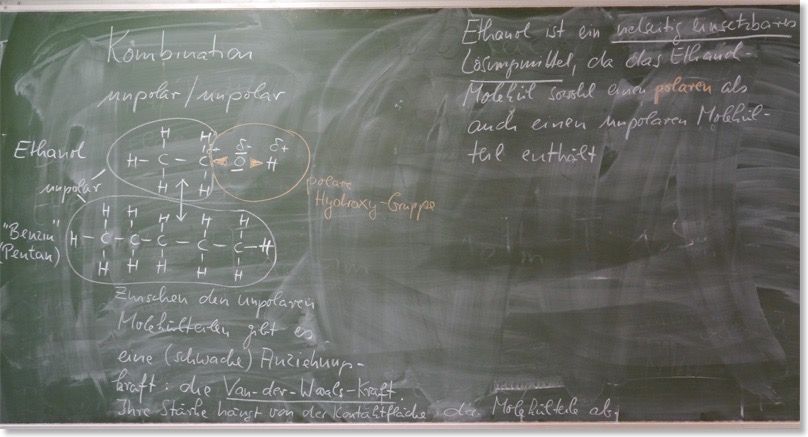 Kombination
unpolar/unpolar
Ethanol
unpolar
H H
H – C – C O H
δ+ δ- δ+
H H
polare
Hydroxy-Gruppe
"Benzin"
(Pentan)
H H H H H
H – C – C – C – C – C – H
H H H H H
Zwischen den unpolaren
Molekülteilen gibt es
eine (schwache) Anziehungs-
kraft: die Van-der-Waals-Kraft.
Ihre Stärke hängt von der Kontaktfläche der Molekülteile ab.
Ethanol ist ein vielseitig einsetzbares
Lösungsmittel, da das Ethanol-
Molekül sowohl einen polaren als
auch einen unpolaren Molekül-
teil enthält